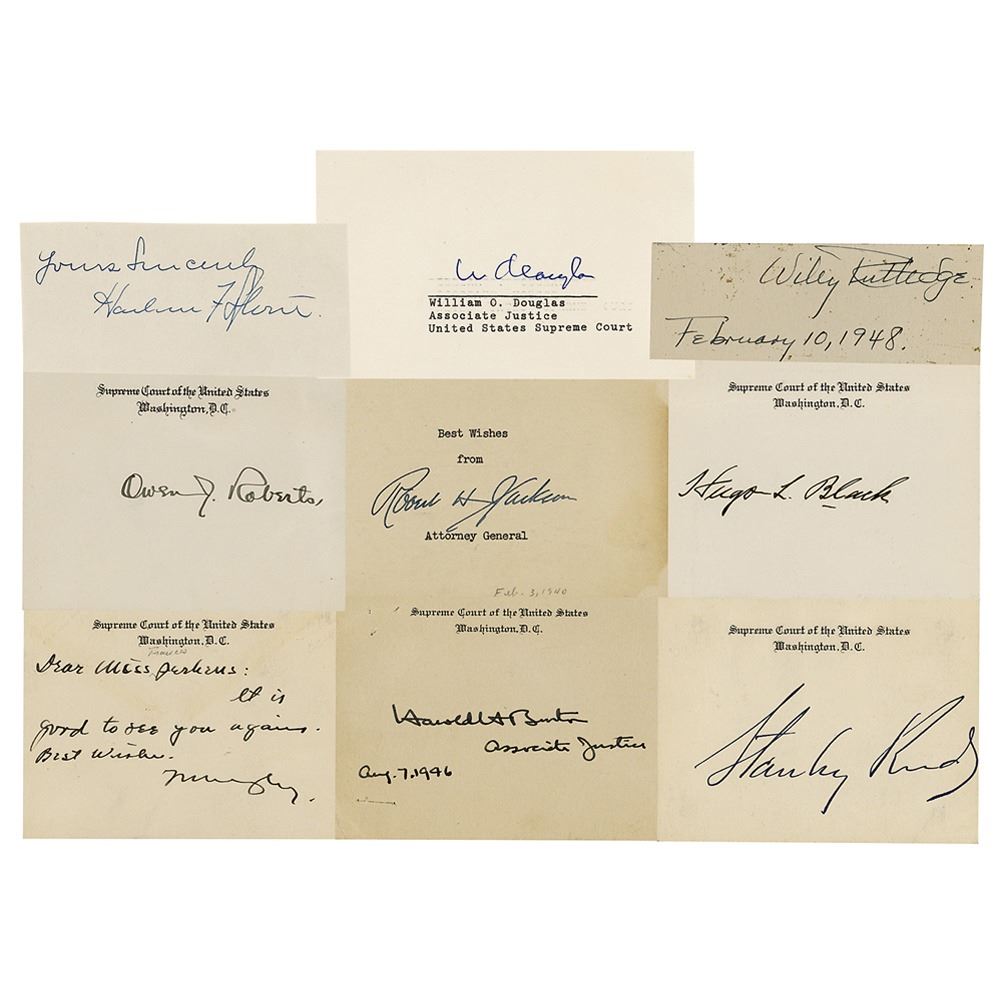 Yours Sincerely
Harlan F Stone.
Wm O Douglas
William O. Douglas
Associate Justice
United States Supreme Court
Wiley Rutledge.
February 10, 1948.
Supreme Court of the United States
Washington, D.C.
Owen J. Roberts,
Best Wishes
from
Robert H Jackson
Attorney General
Feb. 3, 1940
Supreme Court of the United States
Washington, D.C.
Hugo L. Black
Supreme Court of the United States
Washington, D.C.
Frances
Dear Miss Perkins:
It is
good to see you again.
Best Wishes.
Murphy.
Supreme Court of the United States
Washington, D.C.
Harold H Burton
Associate Justice
Aug. 7, 1946
Supreme Court of the United States
Washington, D.C.
Stanley Reed